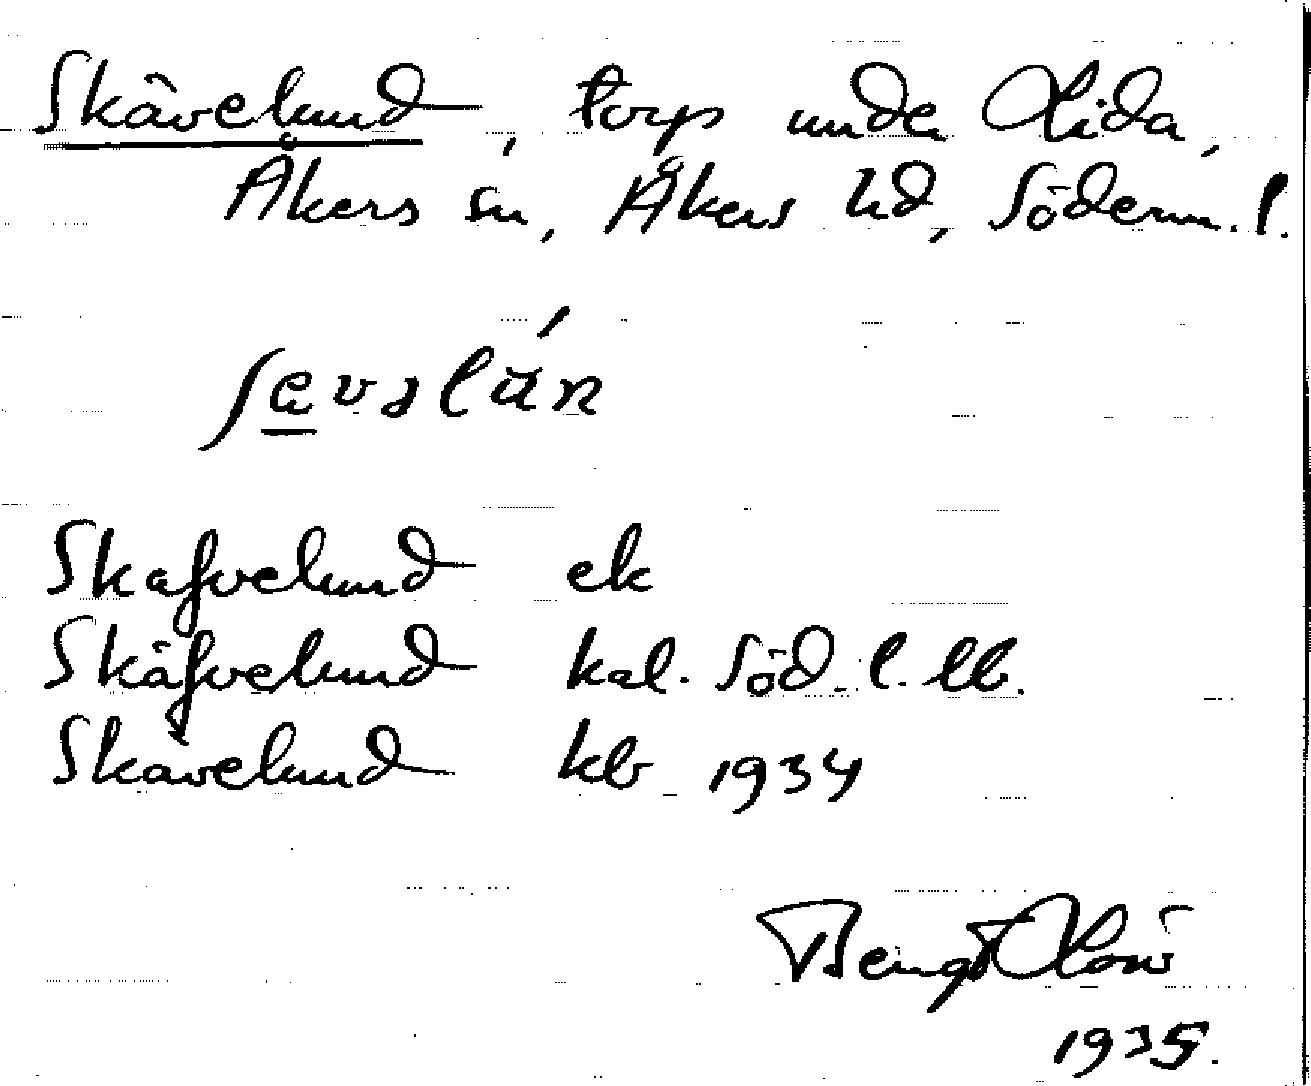 Skävelund, torp under Lida,
Åkers sn, Åkers hd, Söderm. l.
Skafvelund ek
Skäfvelund kal. Söd. l. lb.
Skävelund kb 1934
Bengt
1935.